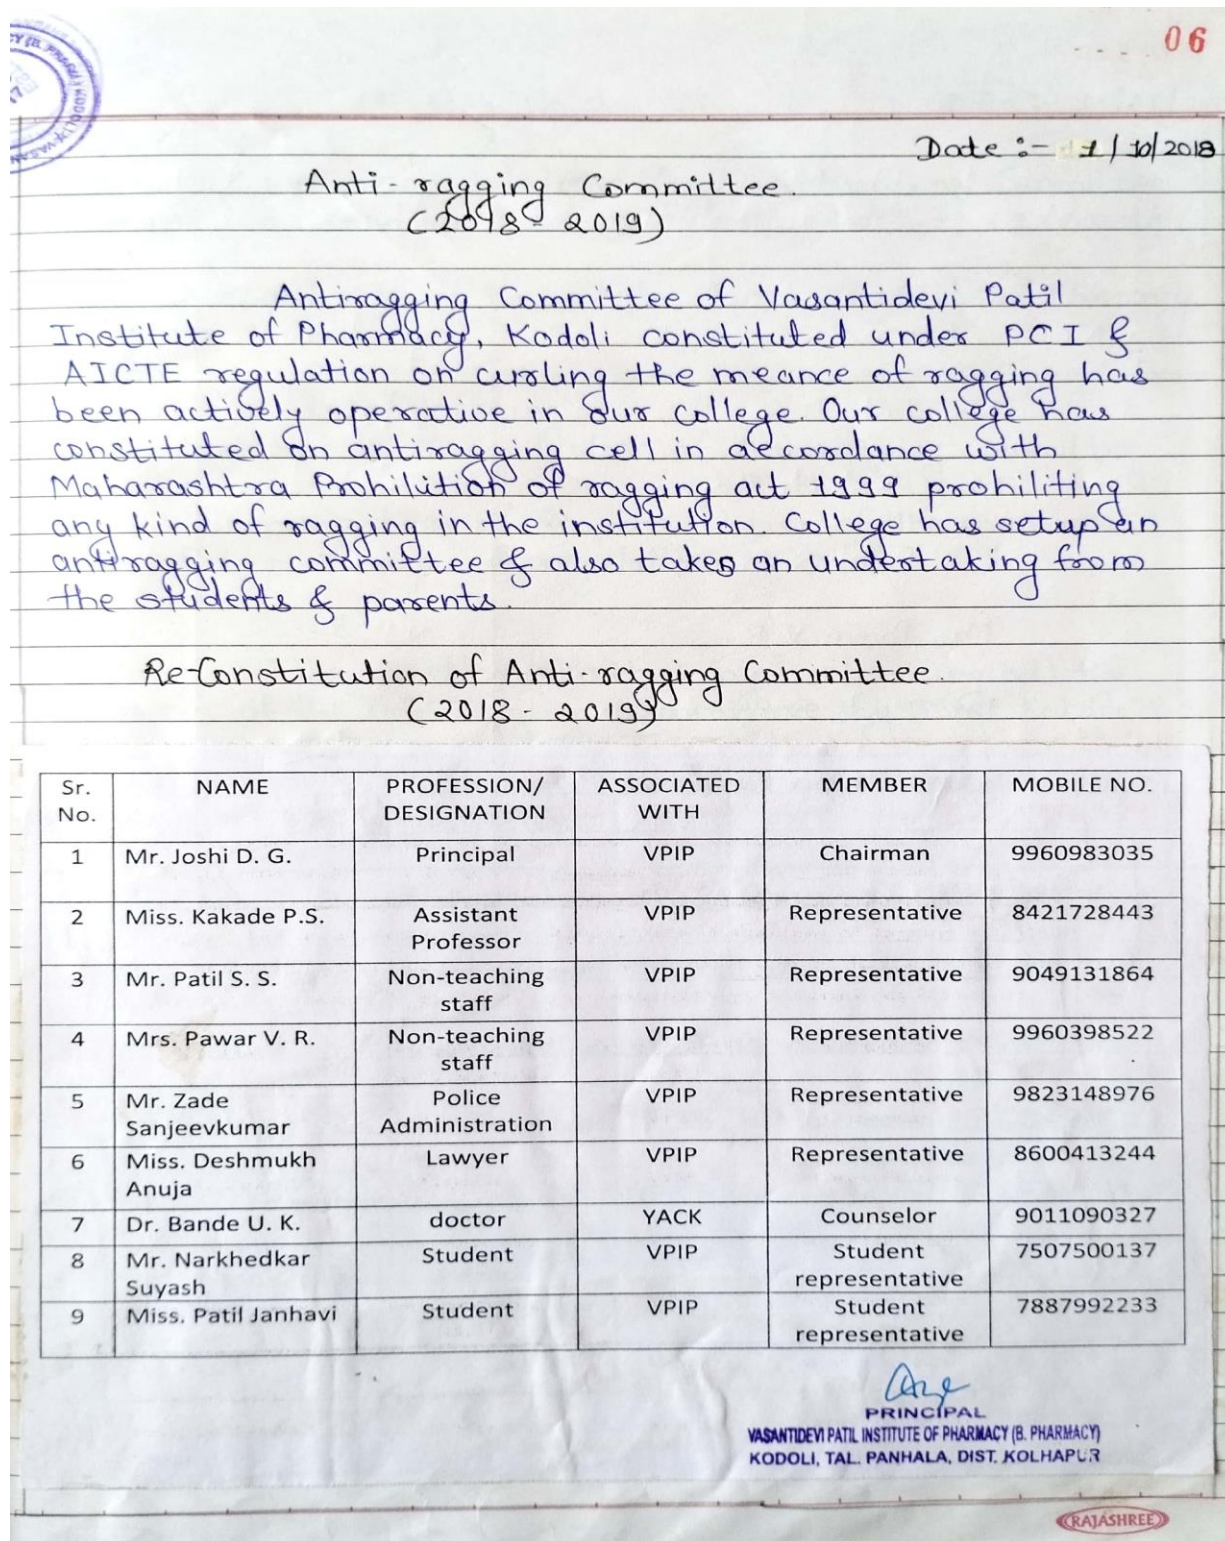 06
Date :- 1/10/2018
Anti-ragging Committee.
(2018-2019)
Antiragging Committee of Vasantidevi Patil
Institute of Pharmacy, Kodoli constituted under PCI &
AICTE regulation on curling the meance of ragging has
been actively operative in our college. Our college has
constituted on antiragging cell in accordance with
Maharashtra Prohilition of ragging act 1999 prohiliting
any kind of ragging in the institution. College has setup an
antiragging committee & also takes an undertaking from
the students & parents.
Re-Constitution of Anti-ragging Committee.
(2018 - 2019)
Sr. No. NAME PROFESSION/ DESIGNATION ASSOCIATED WITH MEMBER MOBILE NO.
1 Mr. Joshi D. G. Principal VPIP Chairman 9960983035
2 Miss. Kakade P.S. Assistant Professor VPIP Representative 8421728443
3 Mr. Patil S. S. Non-teaching staff VPIP Representative 9049131864
4 Mrs. Pawar V. R. Non-teaching staff VPIP Representative 9960398522
5 Mr. Zade Sanjeevkumar Police Administration VPIP Representative 9823148976
6 Miss. Deshmukh Anuja Lawyer VPIP Representative 8600413244
7 Dr. Bande U. K. doctor YACK Counselor 9011090327
8 Mr. Narkhedkar Suyash Student VPIP Student representative 7507500137
9 Miss. Patil Janhavi Student VPIP Student representative 7887992233
PRINCIPAL
VASANTIDEVI PATIL INSTITUTE OF PHARMACY (B. PHARMACY)
KODOLI, TAL. PANHALA, DIST. KOLHAPUR
RAJASHREE